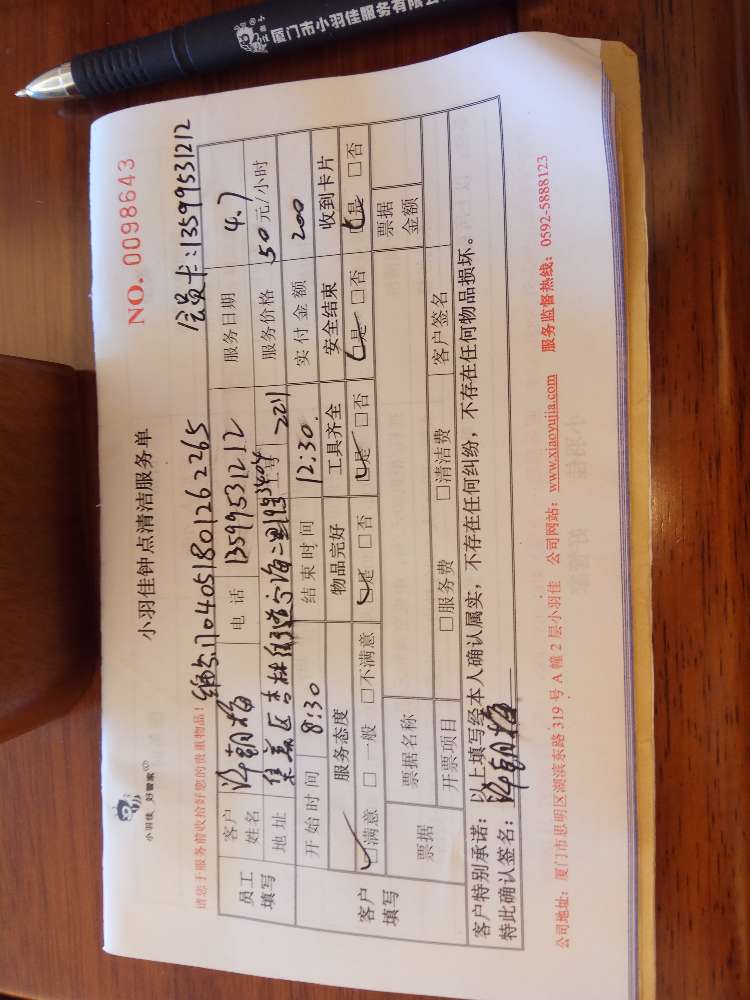 厦门市小羽佳服务有限公
小羽佳 好管家
小羽佳钟点清洁服务单
NO. 0098643
请您于服务前收拾好您的贵重物品!
1704051801262265
会员卡:13599531212
员工填写
客户姓名
电话 13599531212
服务日期 4.7
地址 集美区杏林街道
221
服务价格 50元/小时
开始时间 8:30
结束时间 12:30
实付金额 200
客户填写
服务态度 物品完好 工具齐全 安全结束 收到卡片
□满意 □一般 □不满意 □是 □否 □是 □否 □是 □否 □是 □否
票据
票据名称
票据金额
开票项目 □服务费 □清洁费 客户签名
客户特别承诺:以上填写经本人确认属实,不存在任何纠纷,不存在任何物品损坏。
特此确认签名:
公司地址:厦门市思明区湖滨东路319号A幢2层小羽佳 公司网站:www.xiaoyujia.com 服务监督热线:0592-5888123